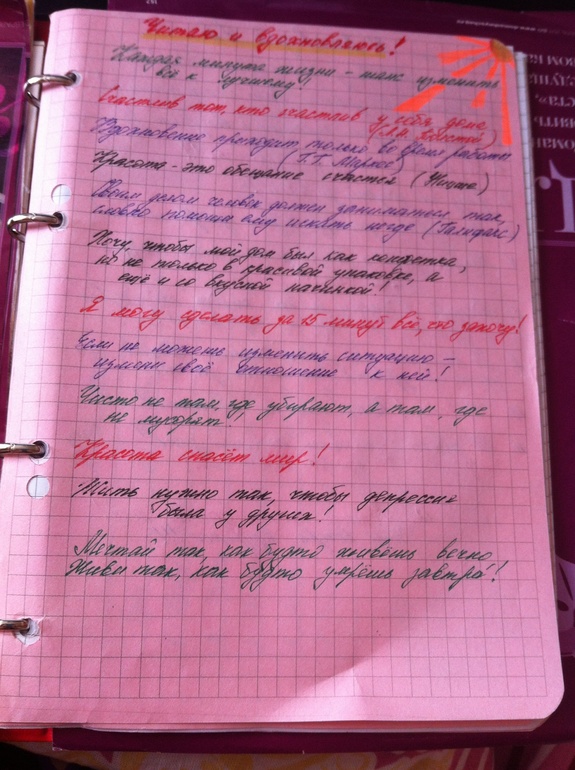 Читаю и вдохновляюсь!
Каждая минута жизни – шанс изменить
всё к лучшему!
Счастлив тот, кто счастлив у себя дома
(Л.Н. Толстой)
Вдохновение приходит только во время работы
(Г.Г. Маркес)
Красота - это обещание счастья (Ницше)
Своим делом человек должен заниматься так,
словно помощи ему искать негде (Галифакс)
Хочу, чтобы мой дом был как конфетка,
но не только в красивой упаковке, а
ещё и со вкусной начинкой!
Я могу сделать за 15 минут всё, что захочу!
Если не можешь изменить ситуацию –
измени своё отношение к ней!
Чисто не там, где убирают, а там, где
не мусорят!
Красота спасёт мир!
Жить нужно так, чтобы депрессия
была у других!
Мечтай так, как будто живёшь вечно
Живи так, как будто умрёшь завтра!